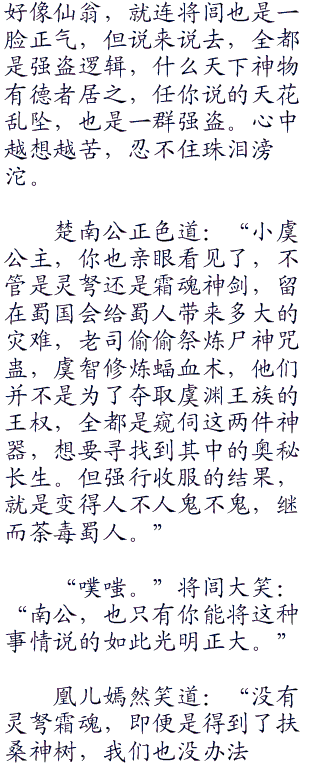 好像仙翁，就连将闾也是一
脸正气，但说来说去，全都
是强盗逻辑，什么天下神物
有德者居之，任你说的天花
乱坠，也是一群强盗。心中
越想越苦，忍不住珠泪滂
沱。
楚南公正色道：“小虞
公主，你也亲眼看见了，不
管是灵弩还是霜魂神剑，留
在蜀国会给蜀人带来多大的
灾难，老司偷偷祭炼尸神咒
蛊，虞智修炼蝠血术，他们
并不是为了夺取虞渊王族的
王权，全都是窥伺这两件神
器，想要寻找到其中的奥秘
长生。但强行收服的结果，
就是变得人不人鬼不鬼，继
而荼毒蜀人。”
“噗嗤。”将闾大笑：
“南公，也只有你能将这种
事情说的如此光明正大。”
凰儿嫣然笑道：“没有
灵弩霜魂，即便是得到了扶
桑神树，我们也没办法